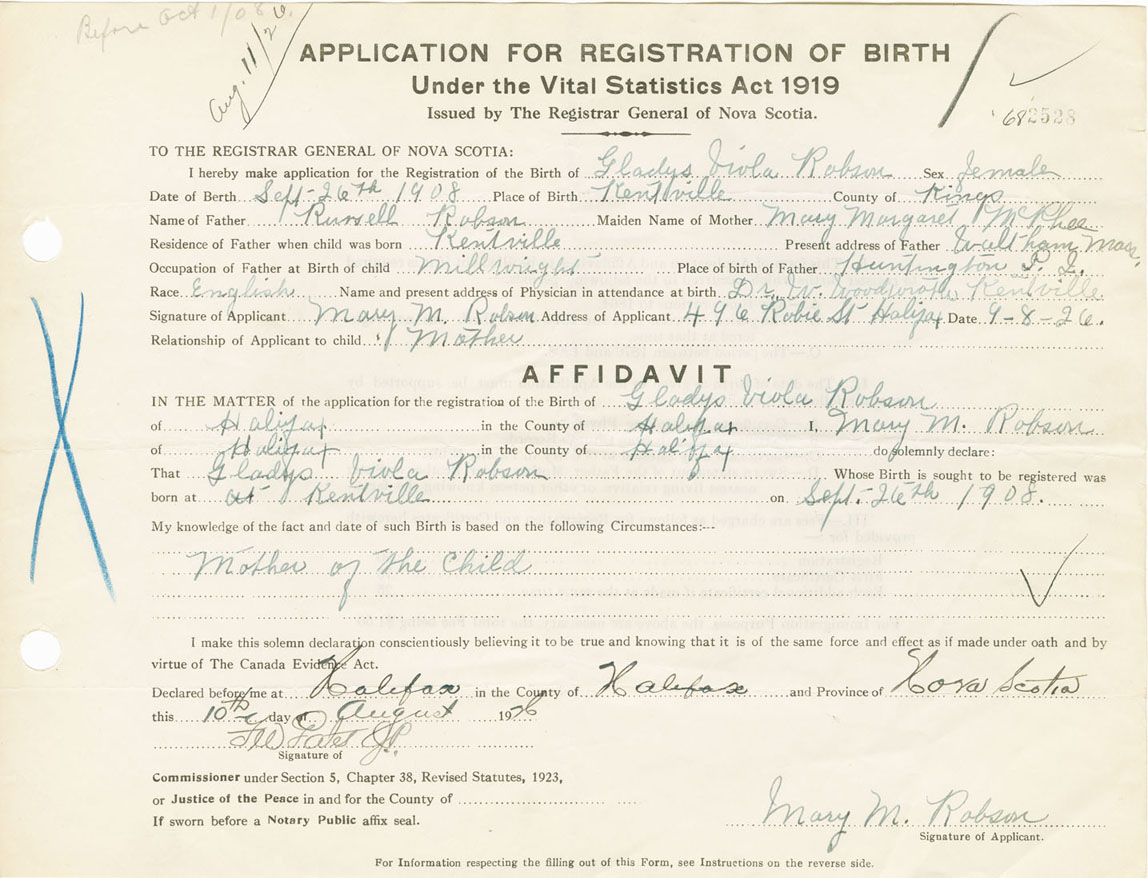 Before Oct 1/08
Aug. 11/26.
APPLICATION FOR REGISTRATION OF BIRTH
Under the Vital Statistics Act 1919
Issued by The Registrar General of Nova Scotia.
682528
TO THE REGISTRAR GENERAL OF NOVA SCOTIA:
I hereby make application for the Registration of the Birth of Gladys Viola Robson Sex female
Date of Berth Sept-26th 1908 Place of Birth Kentville County of Kings
Name of Father Russell Robson Maiden Name of Mother Mary Margaret McPhee
Residence of Father when child was born Kentville Present address of Father Waltham Mass.
Occupation of Father at Birth of child Millwright Place of birth of Father Huntington P. I.
Race English Name and present address of Physician in attendance at birth Dr. W. Woodworth Kentville
Signature of Applicant Mary M. Robson Address of Applicant 496 Robie St Halifax Date 9-8-26.
Relationship of Applicant to child Mother
AFFIDAVIT
IN THE MATTER of the application for the registration of the Birth of Gladys Viola Robson
of Halifax in the County of Halifax I, Mary M. Robson
of Halifax in the County of Halifax do solemnly declare:
That Gladys Viola Robson Whose Birth is sought to be registered was
born at at Kentville on Sept. 26th 1908.
My knowledge of the fact and date of such Birth is based on the following Circumstances:--
Mother of the Child
I make this solemn declaration conscientiously believing it to be true and knowing that it is of the same force and effect as if made under oath and by
virtue of The Canada Evidence Act.
Declared before me at Halifax in the County of Halifax and Province of Nova Scotia
this 10th day of August 1926
J.P.
Signature of
Commissioner under Section 5, Chapter 38, Revised Statutes, 1923,
or Justice of the Peace in and for the County of
If sworn before a Notary Public affix seal.
Mary M. Robson
Signature of Applicant.
For Information respecting the filling out of this Form, see Instructions on the reverse side.